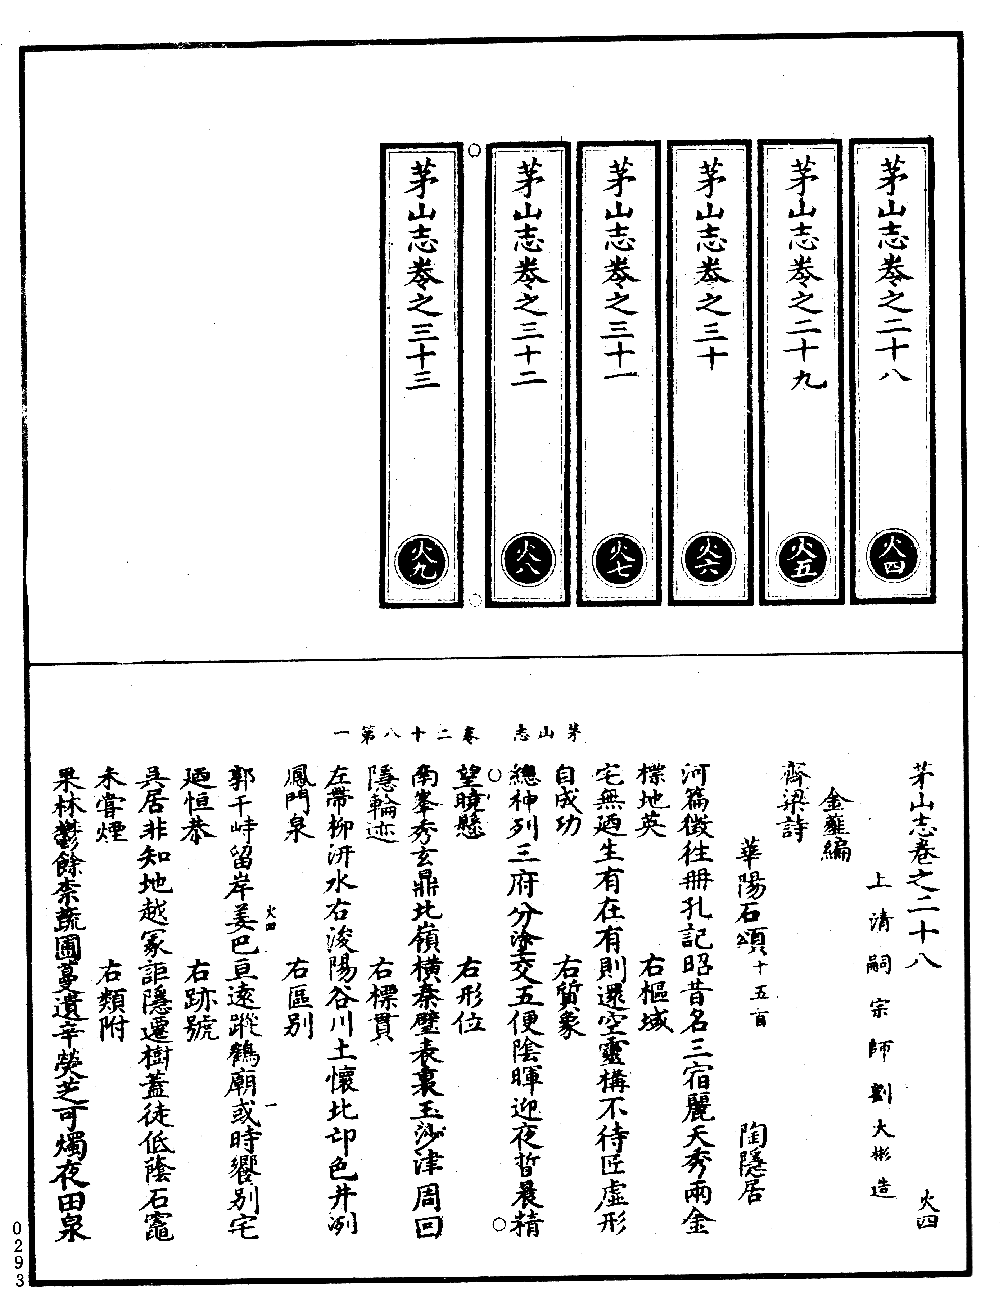 茅山志卷之二十八
火四
茅山志卷之二十九
火五
茅山志卷之三十
火六
茅山志卷之三十一
火七
茅山志卷之三十二
火八
茅山志卷之三十三
火九
茅山志 卷二十八第一
茅山志卷之二十八 火四
上清嗣宗師劉大彬造
金薤編
齊梁詩
華陽石頌十五首 陶隱居
河篇徵往冊孔記昭昔名三宿麗天秀兩金
標地英 右樞域
宅無迺生有在有則還空靈構不待匠虛形
自成功 右質象
總神列三府分塗交五便陰暉迎夜晢晨精
望曉懸 右形位
南峯秀玄鼎北嶺橫秦璧表裏玉沙津周回
隱輪迹 右標貫
左帶柳汧水右浚陽谷川土懷北邙色井洌
鳳門泉 右區別
郭千峙留岸姜巴亘遠蹤鶴廟或時饗別宅
迺恒恭 右跡號
吳居非知地越冢詎隱遷樹蓋徒低蔭石竈
未嘗煙 右類附
果林鬱餘柰蔬圃蔓遺辛熒芝可燭夜田泉
火四 一
0293